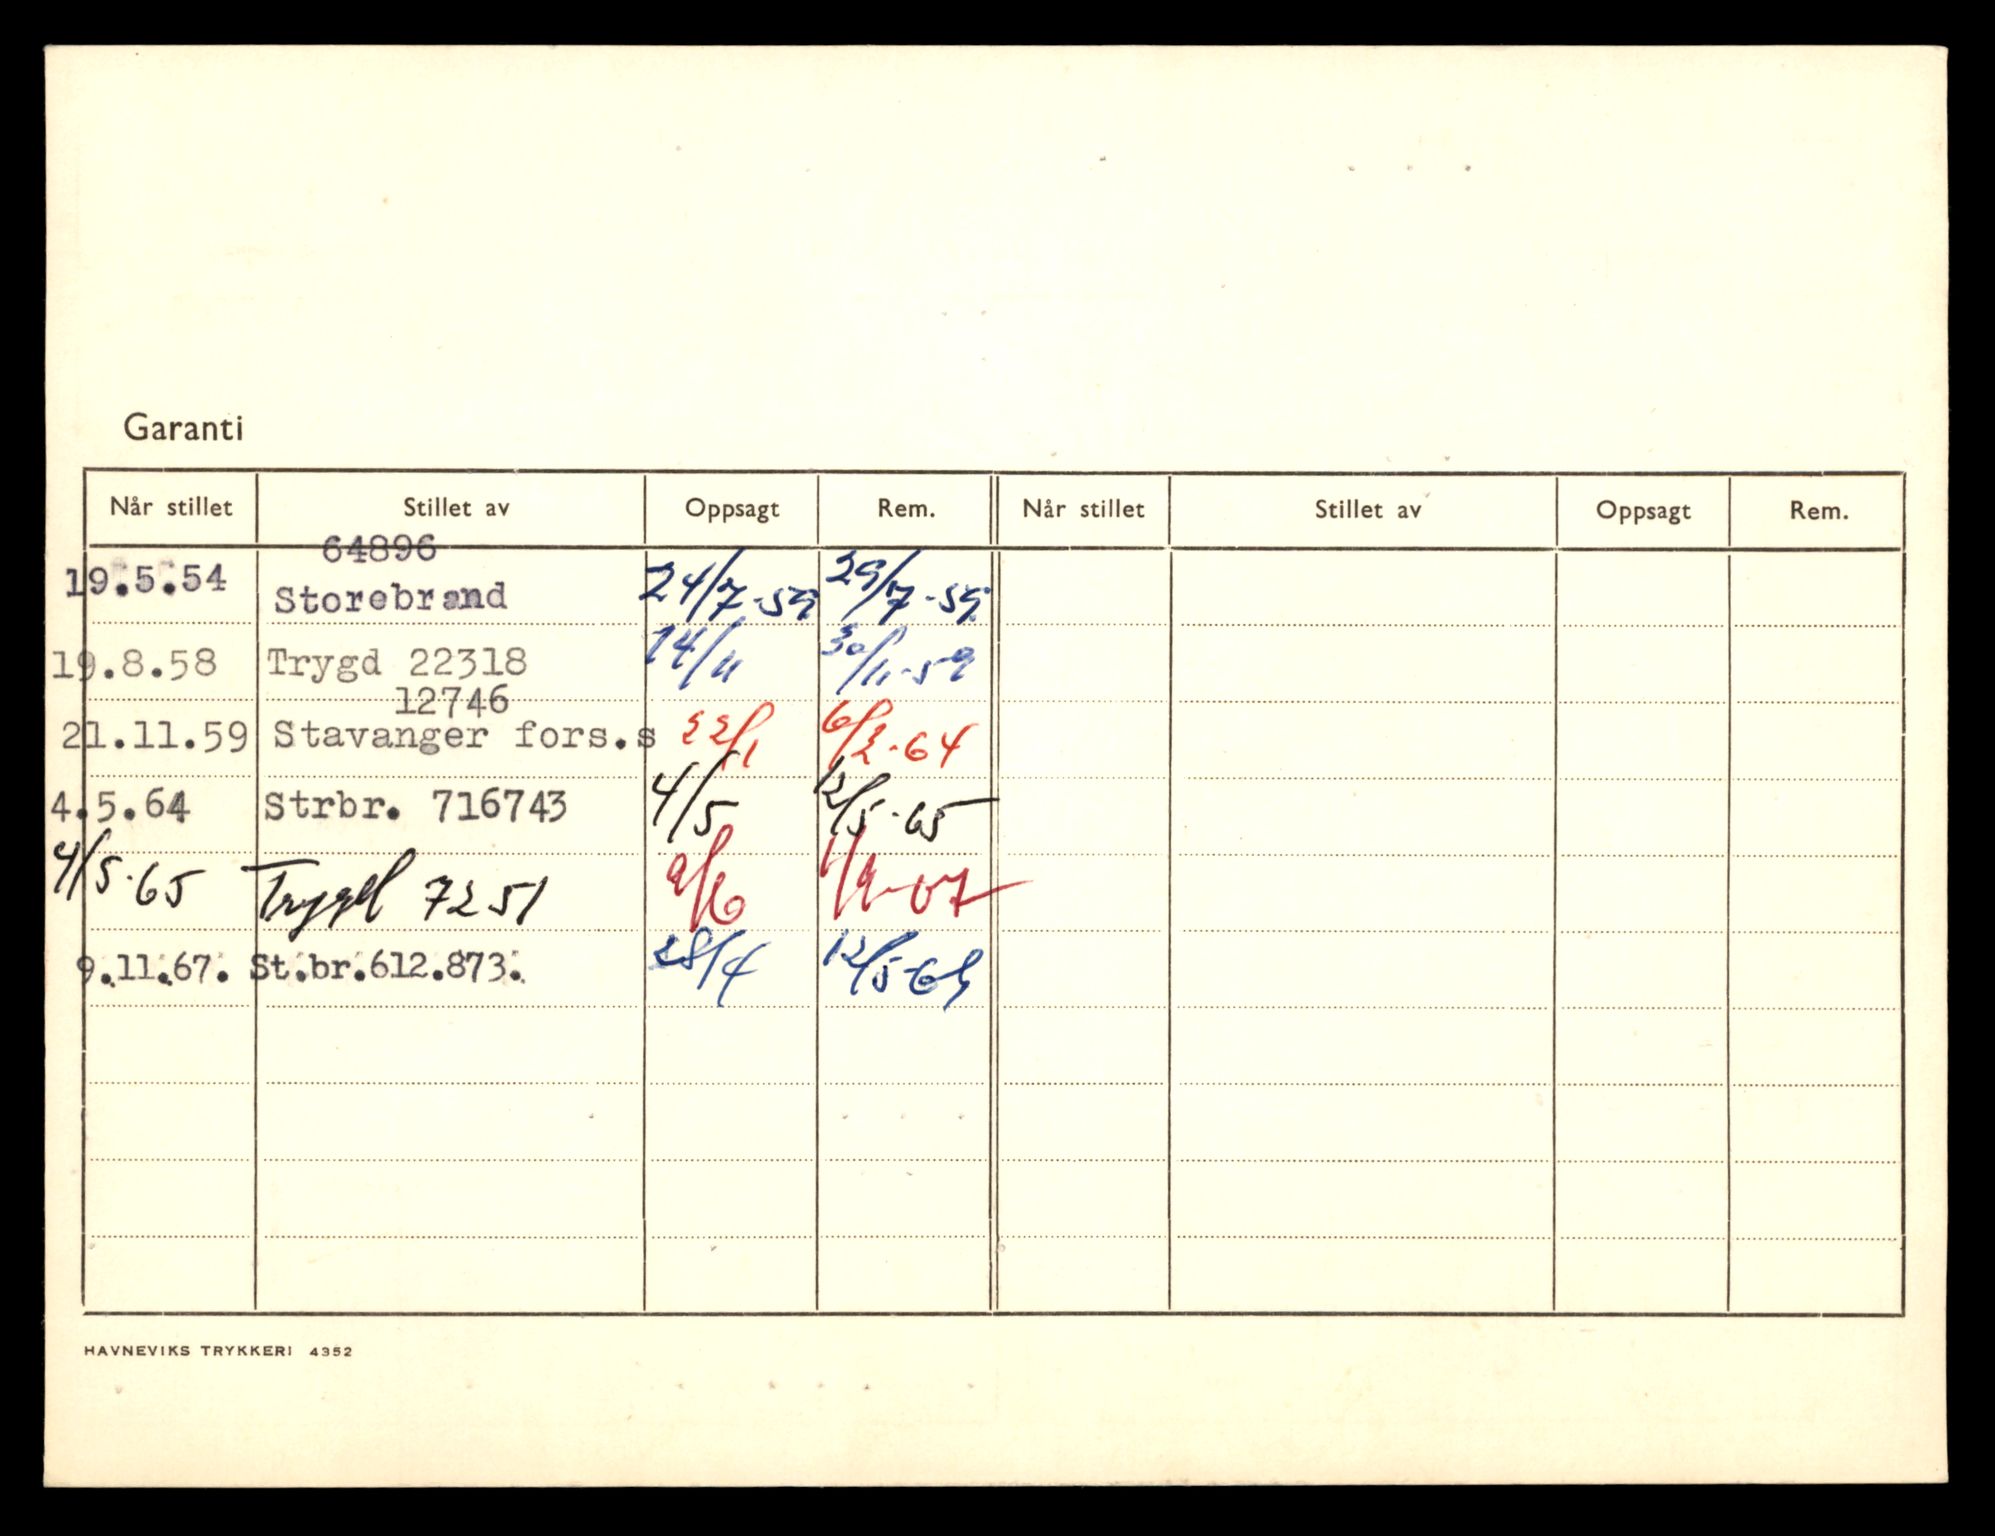 Garanti
Når stillet Stillet av Oppsagt Rem. Når stillet Stillet av Oppsagt Rem.
64896
19.5.54 Storebrand 24/7-59 29/7-59
19.8.58 Trygd 22318 14/11 30/11-59
12746
21.11.59 Stavanger fors.s 22/1 6/2-64
4.5.64 Strbr. 716743 4/5 12/5-65
4/5-65 Trygd 7251 9/6 1/9-67
9.11.67. St.br.612.873. 28/4 12/5-69
HAVNEVIKS TRYKKERI 4352